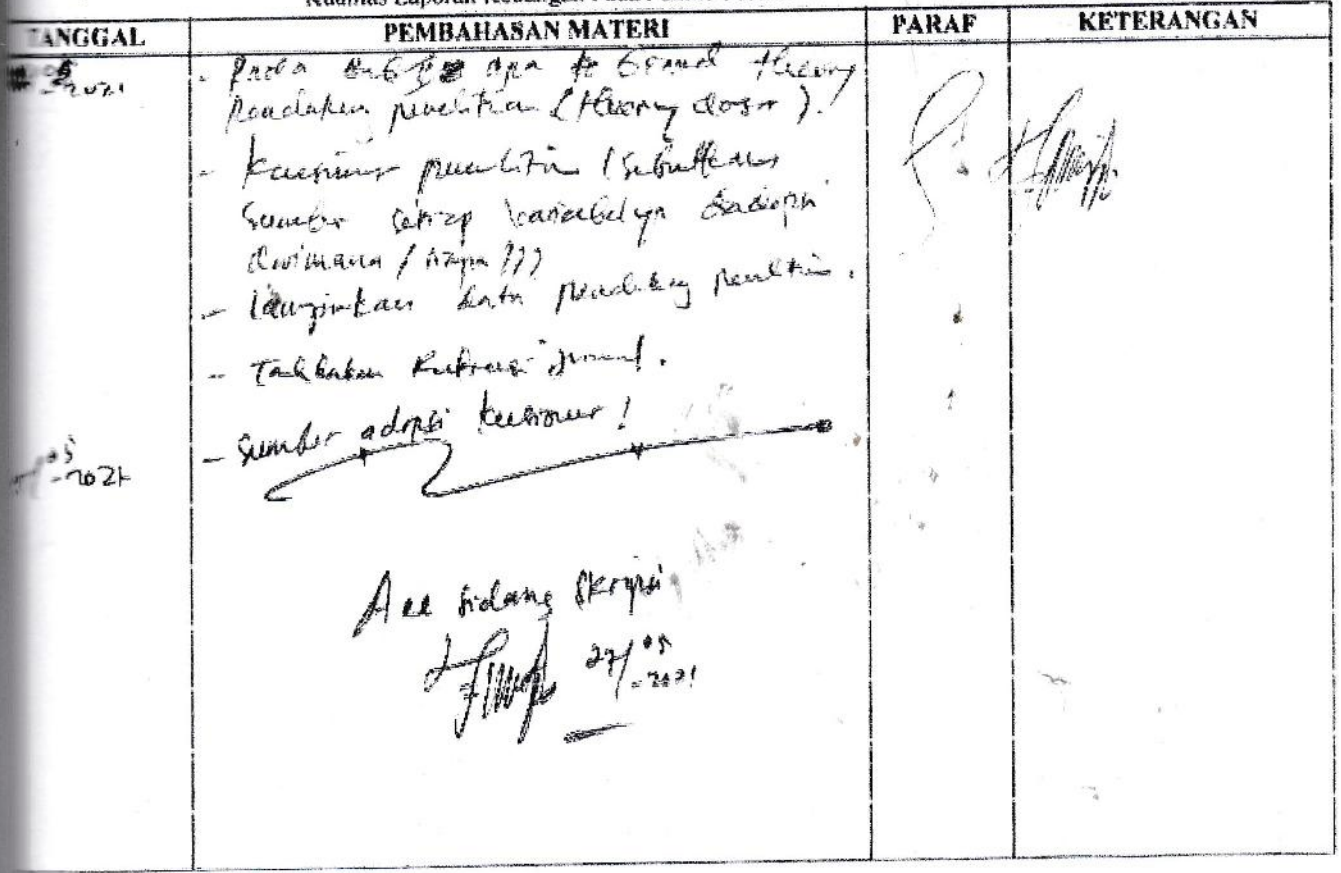 Kualitas Laporan Keuangan
TANGGAL PEMBAHASAN MATERI PARAF KETERANGAN
05 - 2021
- Pada bab apa Grand theory
penelitian (theory dasar).!
- Kuesioner penelitian (sebutkan
sumber setiap variabelnya diadopsi
dimana / siapa ???
- lampirkan data pendukung penelitian.
- Tambahkan Referensi jurnal.
05 - 2021
- Sumber adopsi kuesioner !
Acc Sidang Skripsi
27/05 - 2021